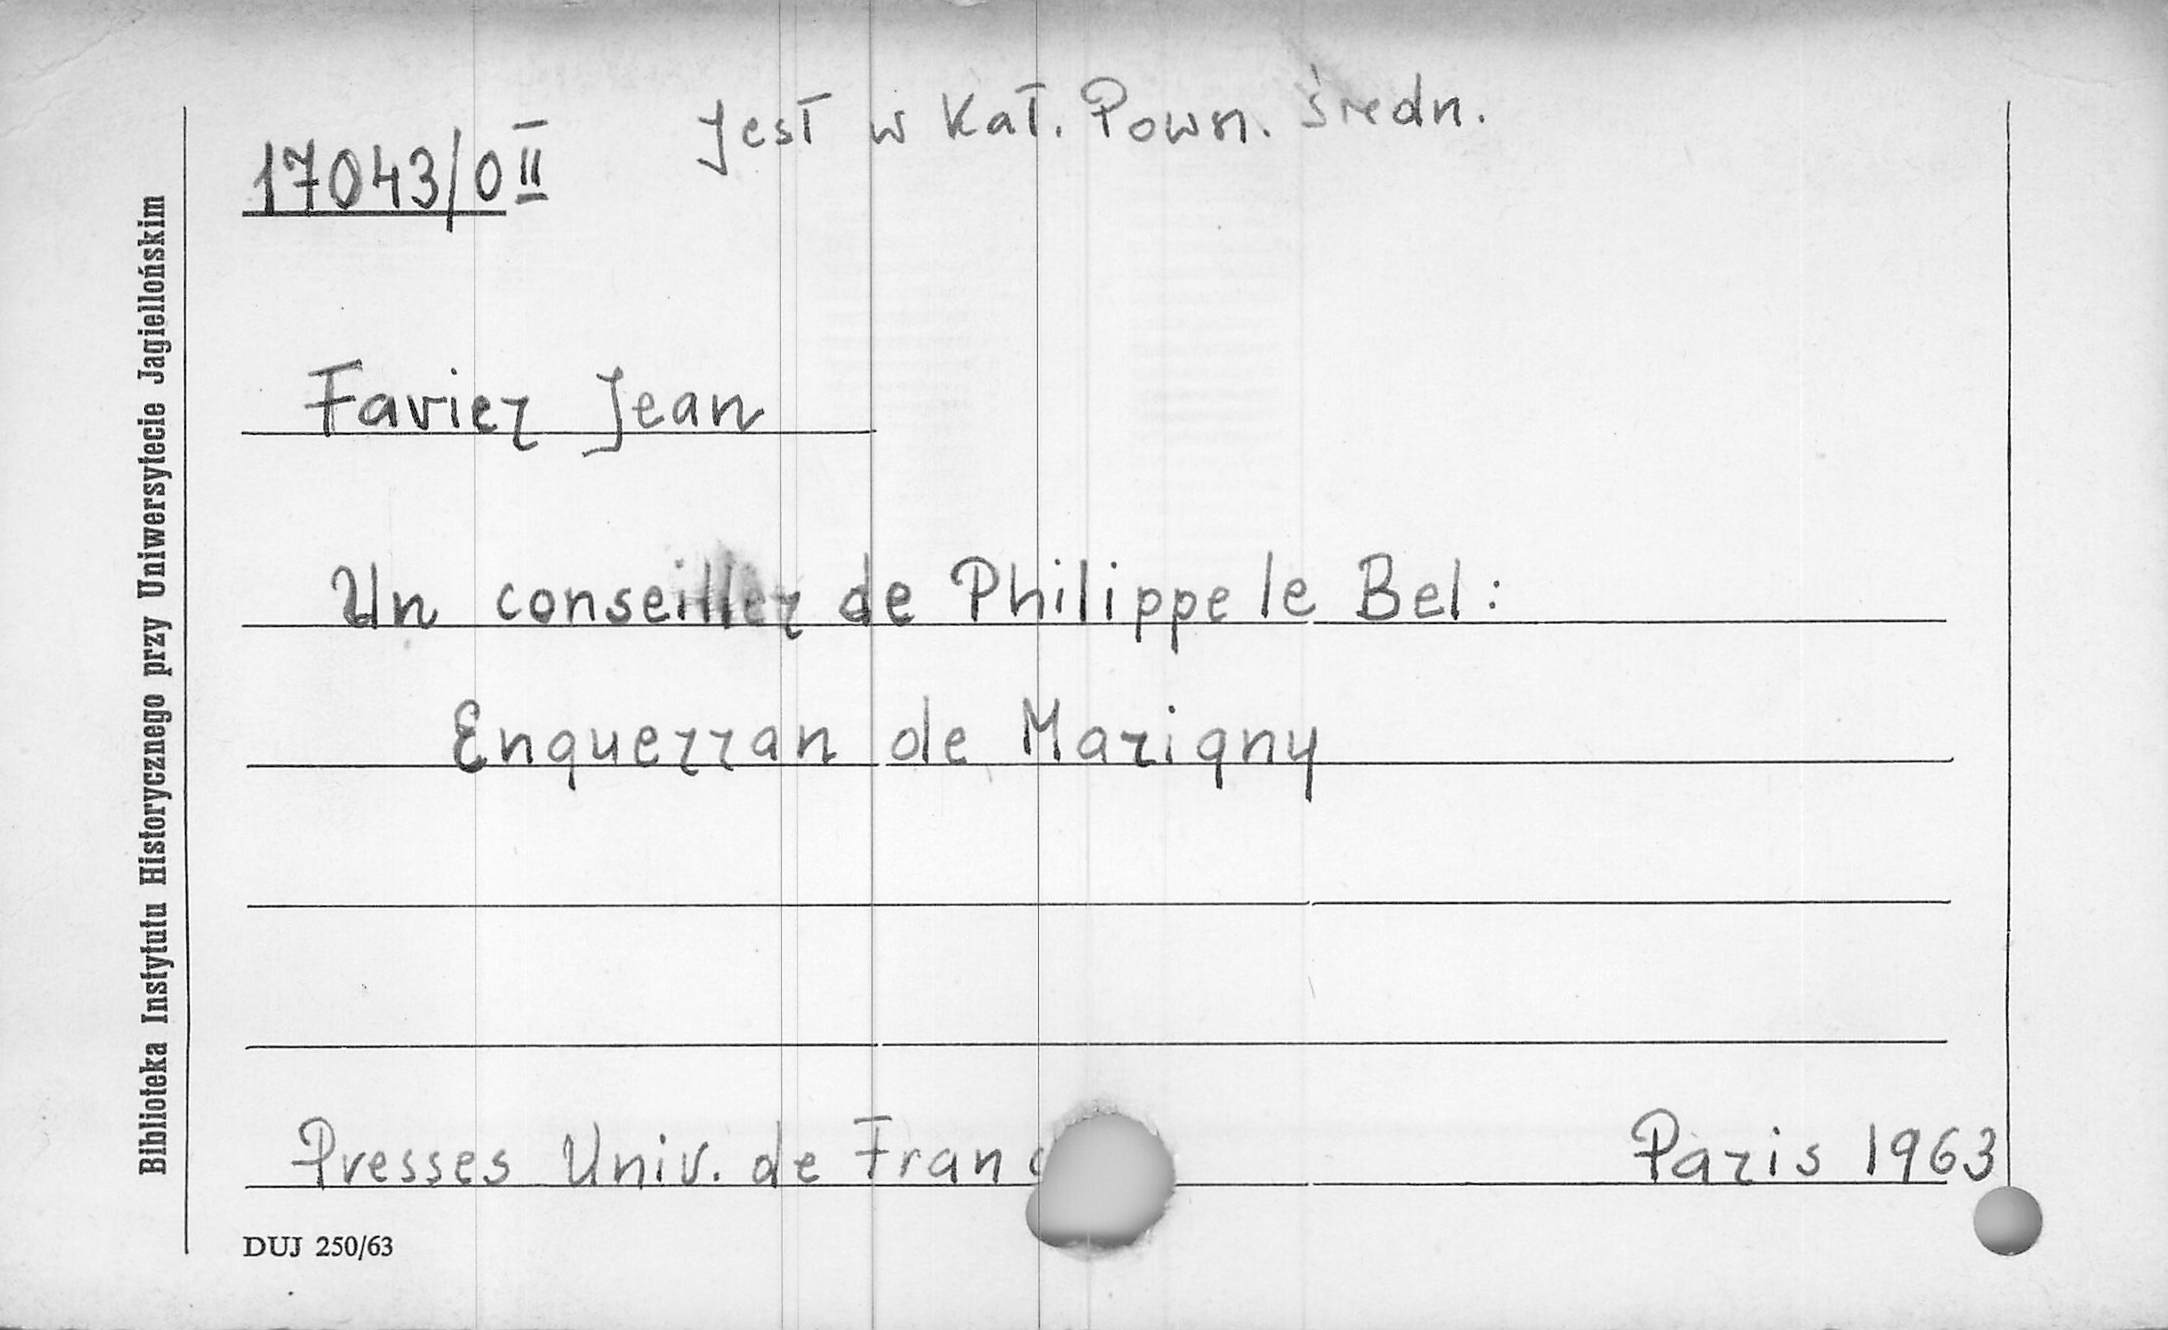 17043/0 II
Jest w Kat. Powsz. średn.
Favier Jean
Un conseiller de Philippe le Bel:
Enquerran de Mariqny
Presses Univ. de Franc
Paris 1963
DUJ 250/63
Biblioteka Instytutu Historycznego przy Uniwersytecie Jagiellońskim